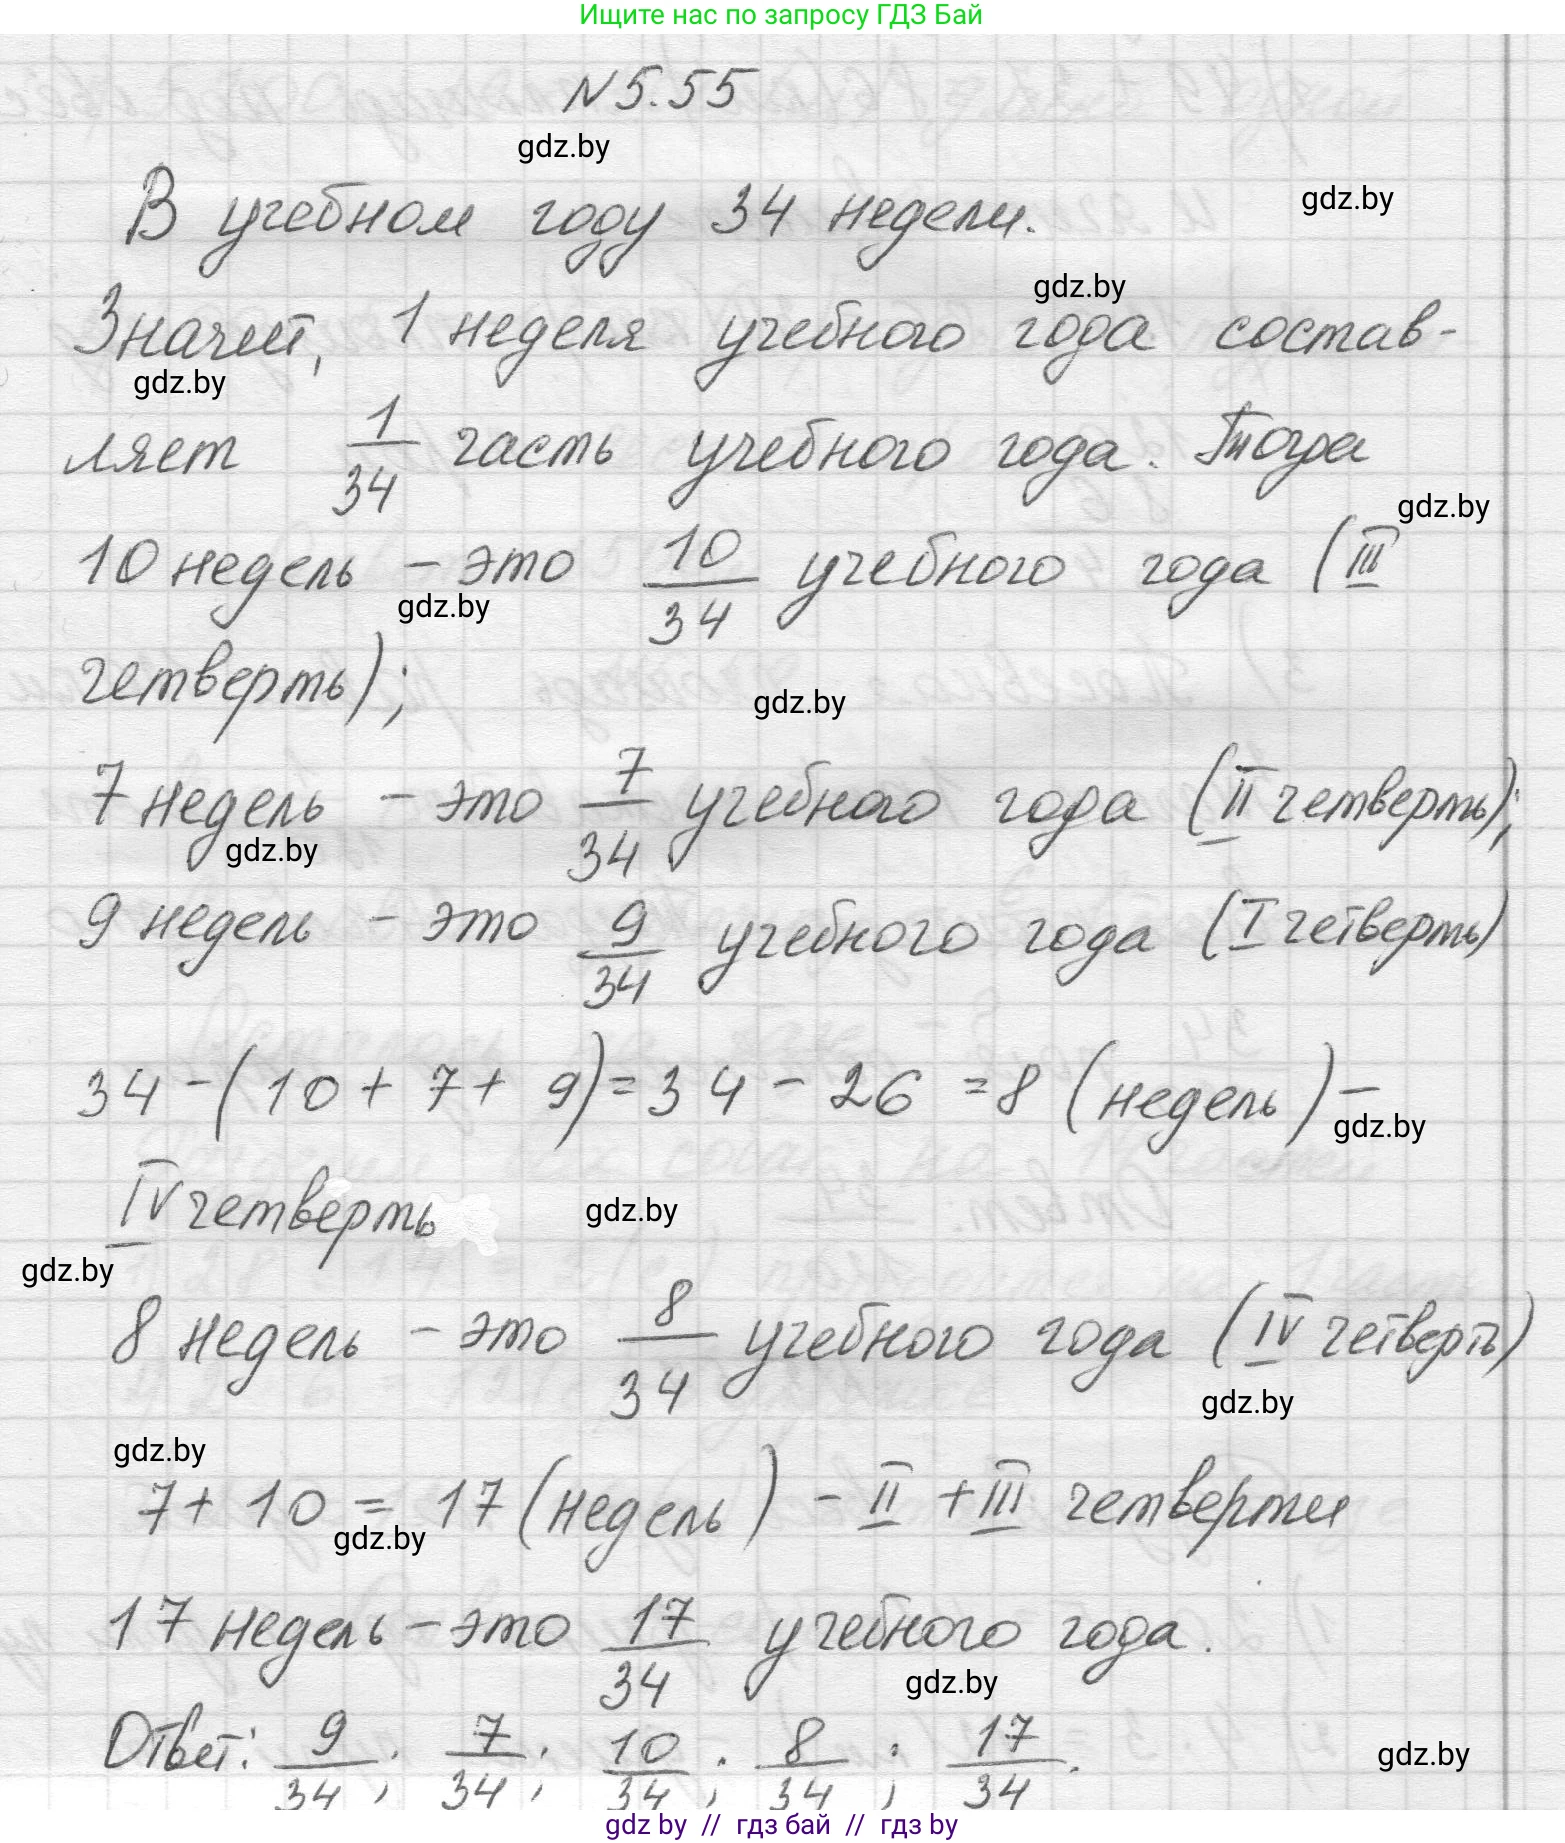 Ищите нас по запросу ГДЗ Бай
N 5.55
gdz.by
В учебном году 34 недели.
gdz.by
gdz.by
Значит, 1 неделя учебного года состав-
gdz.by
ляет 1/34 часть учебного года. Тогда
gdz.by
10 недель – это 10/34 учебного года (III
gdz.by
четверть);
gdz.by
7 недель – это 7/34 учебного года (II четверть);
gdz.by
9 недель – это 9/34 учебного года (I четверть)
34 – (10 + 7 + 9) = 34 – 26 = 8 (недель) –
gdz.by
IV четверть
gdz.by
gdz.by
8 недель – это 8/34 учебного года (IV четверть)
gdz.by
gdz.by
7 + 10 = 17 (недель) – II + III четверти
gdz.by
17 недель – это 17/34 учебного года.
gdz.by
Ответ: 9/34; 7/34; 10/34; 8/34; 17/34.
gdz.by
gdz by // гдз бай // гдз by